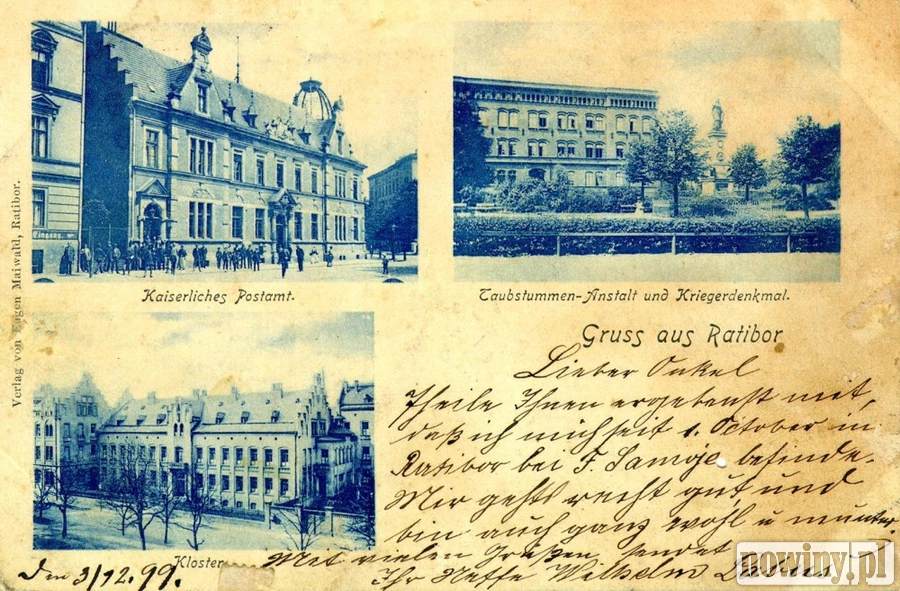 Verlag von Eugen Maiwald, Ratibor.
Eingang
Kaiserliches Postamt.
Taubstummen-Anstalt und Kriegerdenkmal.
Gruss aus Ratibor
Lieber Onkel
Theile Ihnen ergebenst mit,
daß ich mich seit 1. October in
Ratibor bei F. Samoje befinde.
Mir gehts recht gut und
bin auch ganz wohl u munter.
Mit vielen Grüßen sendet
Ihr Neffe Wilhelm
Kloster
Den 3/12.99.
nowiny.pl